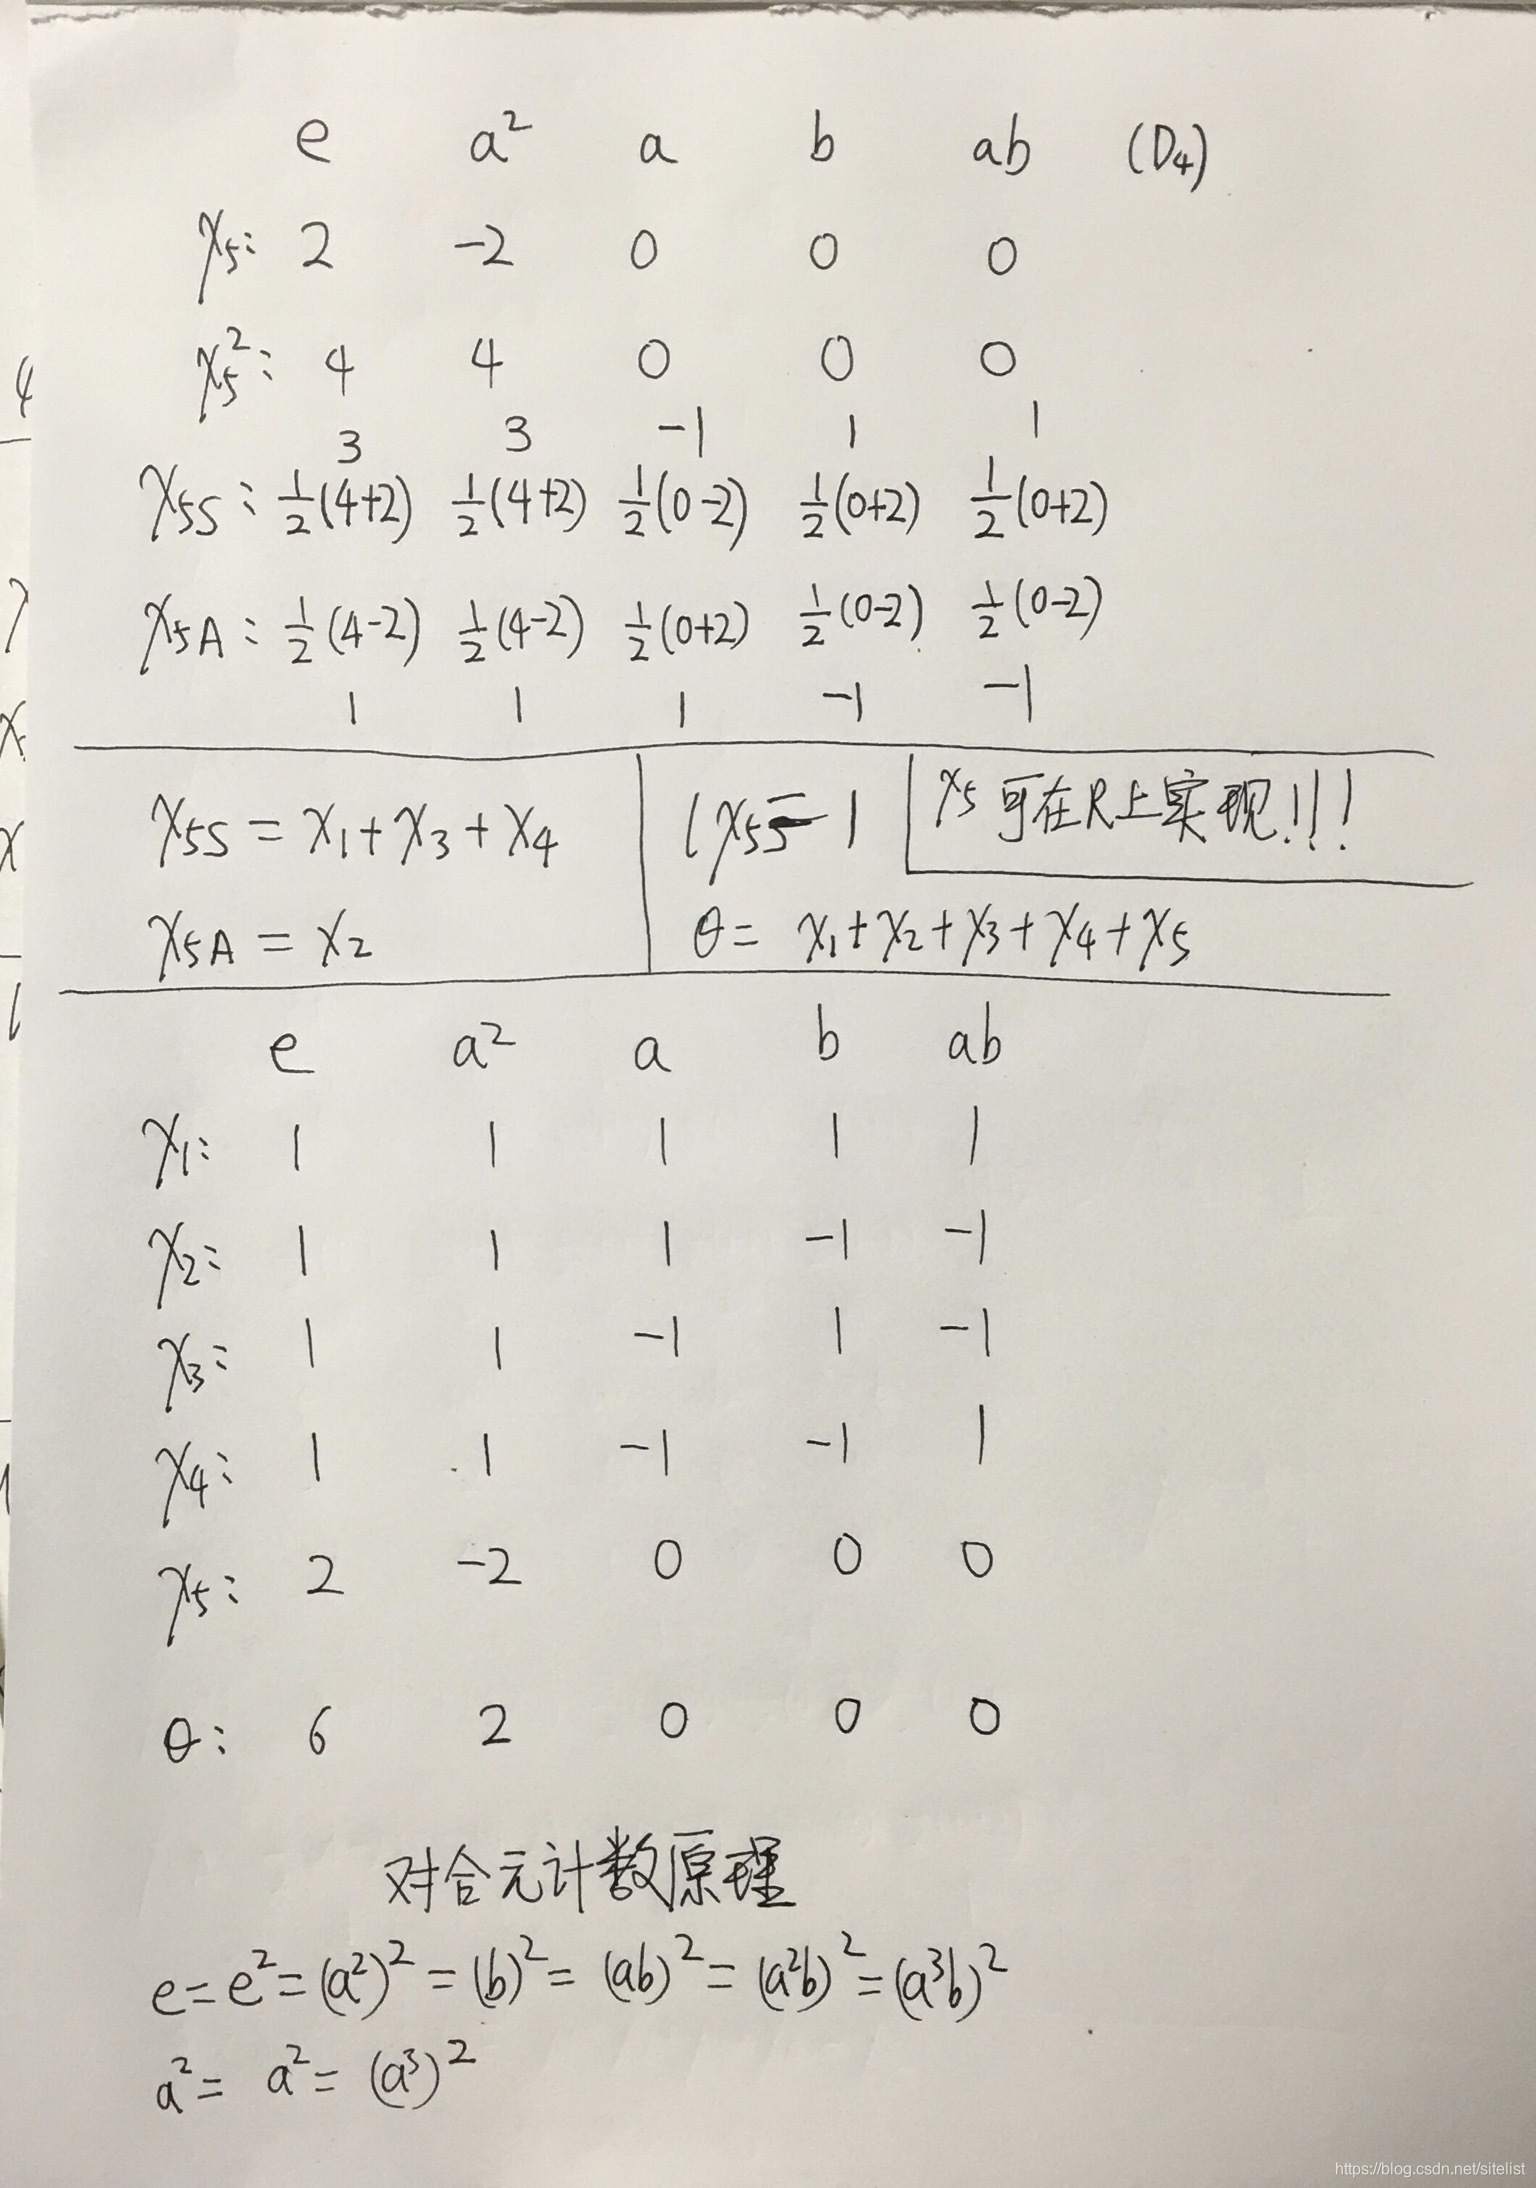 e a² a b ab (D₄)
χ₅: 2 -2 0 0 0
χ₅²: 4 4 0 0 0
3 3 -1 1 1
χ₅S: 1/2(4+2) 1/2(4+2) 1/2(0-2) 1/2(0+2) 1/2(0+2)
χ₅A: 1/2(4-2) 1/2(4-2) 1/2(0+2) 1/2(0-2) 1/2(0-2)
1 1 1 -1 -1
χ₅S = χ₁+χ₃+χ₄
χ₅A = χ₂
χ₅ 可在R上实现!!!
θ= χ₁+χ₂+χ₃+χ₄+χ₅
e a² a b ab
χ₁: 1 1 1 1 1
χ₂: 1 1 1 -1 -1
χ₃: 1 1 -1 1 -1
χ₄: 1 1 -1 -1 1
χ₅: 2 -2 0 0 0
θ: 6 2 0 0 0
对合元计数原理
e=e²=(a²)²=(b)²=(ab)²=(a²b)²=(a³b)²
a²= a²=(a³)²
https://blog.csdn.net/sitelist